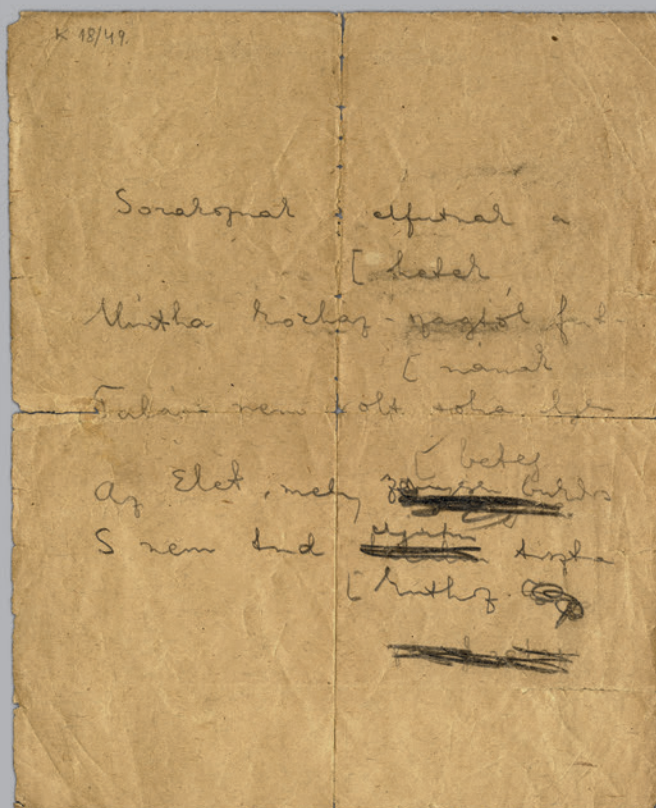 K 18/49.
Sorakoznak s elfutnak a
[ hetek
Mintha kórház-szagtól fut-
[ nának
Talán nem volt soha ily
[ beteg
Az Élet, mely
S nem tud tiszta
[ kúthoz.